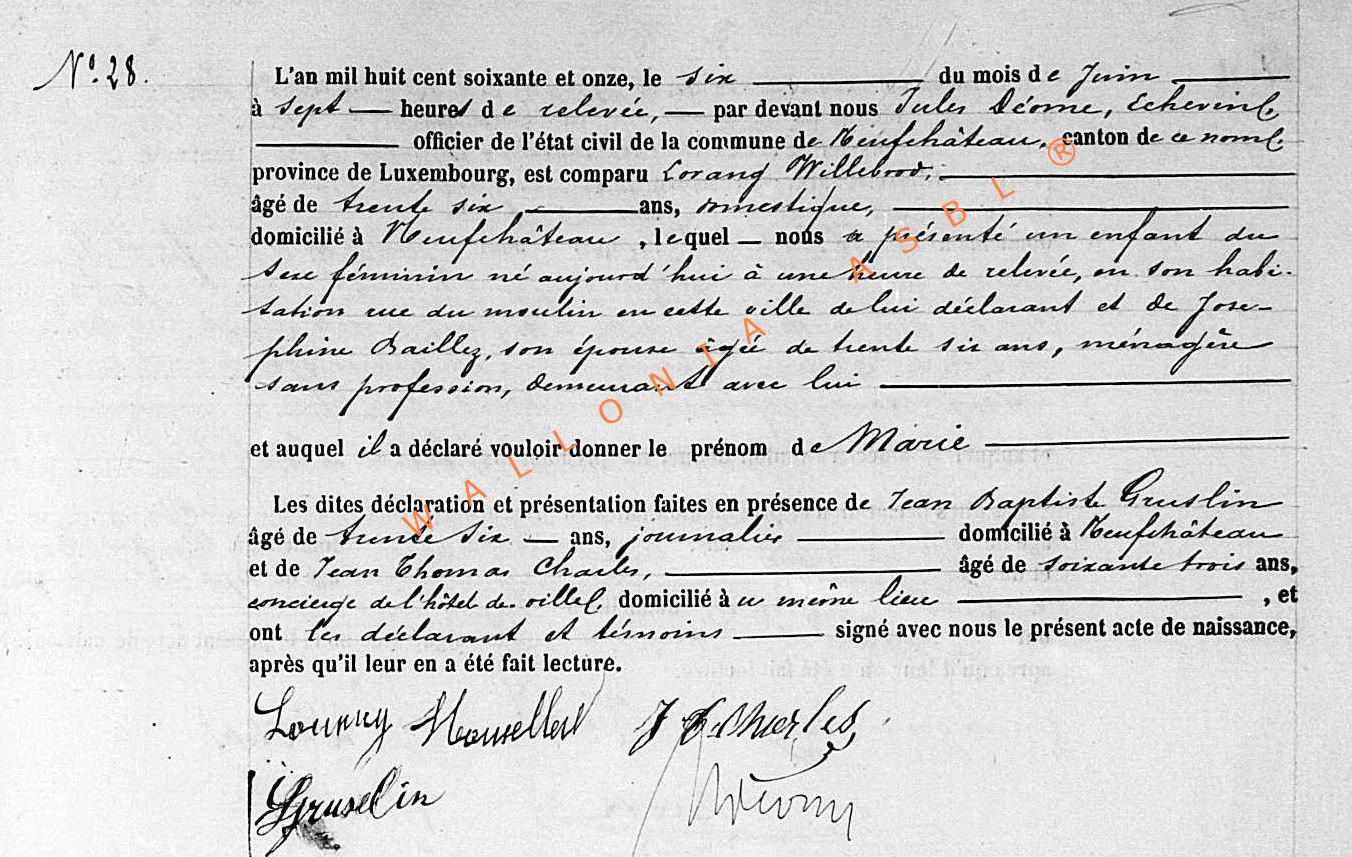 N° 28.
L'an mil huit cent soixante et onze, le six du mois de Juin
à sept heures de relevée, par devant nous Jules Déome, Echevin,
officier de l'état civil de la commune de Neufchâteau, canton de ce nom,
province de Luxembourg, est comparu Lorang Willebrod,
âgé de trente six ans, domestique,
domicilié à Neufchâteau, lequel nous a présenté un enfant du
sexe féminin né aujourd'hui à une heure de relevée, en son habi-
tation rue du moulin en cette ville de lui déclarant et de Jose-
phine Baillez, son épouse âgée de trente six ans, ménagère
sans profession, demeurant avec lui
et auquel il a déclaré vouloir donner le prénom de Marie
Les dites déclaration et présentation faites en présence de Jean Baptiste Gruslin
âgé de trente six ans, journalier domicilié à Neufchâteau
et de Jean Thomas Charles, âgé de soixante trois ans,
concierge de l'hôtel de ville, domicilié à u même lieu , et
ont les déclarant et témoins signé avec nous le présent acte de naissance,
après qu'il leur en a été fait lecture.
J T Charles
Gruselin
JDéome
WALLONIA ASBL ®